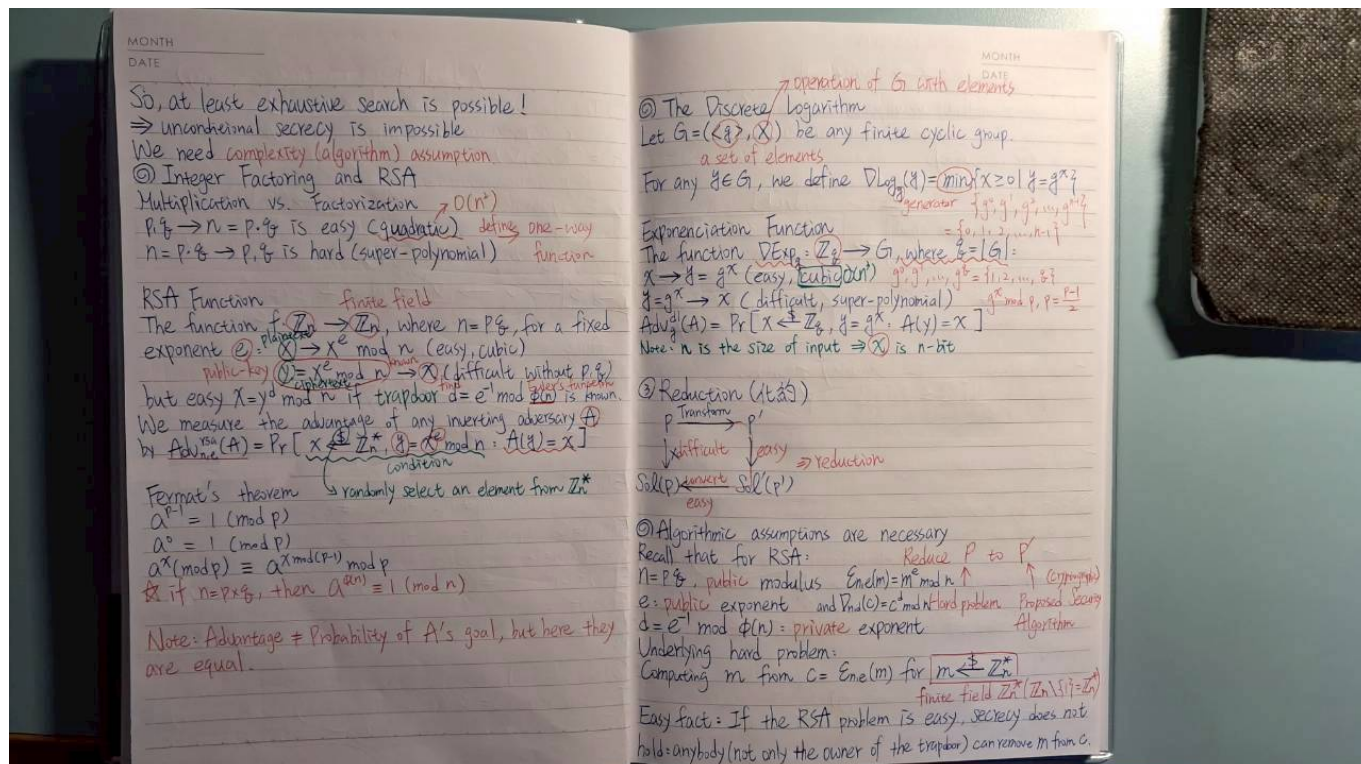 MONTH
DATE
So, at least exhaustive search is possible!
⇒ unconditional secrecy is impossible
We need complexity (algorithm) assumption
◎ Integer Factoring and RSA
Multiplication vs. Factorization → O(n²)
p,q → n = p·q is easy (quadratic) define → one-way
n = p·q → p,q is hard (super-polynomial) function
RSA Function finite field
The function f: Zn → Zn, where n = pq, for a fixed
plaintext
exponent e: x → x^e mod n (easy, cubic)
public-key y = x^e mod n → known x (difficult without p,q)
ciphertext find Euler's function
but easy x = y^d mod n if trapdoor d = e^-1 mod ϕ(n) is known.
We measure the advantage of any inverting adversary A
by Adv^rsa_n,e(A) = Pr[x ←$ Zn*, y = x^e mod n : A(y) = x]
condition
Fermat's theorem ↳ randomly select an element from Zn*
a^p-1 = 1 (mod p)
a^0 = 1 (mod p)
a^x (mod p) ≡ a^x mod (p-1) mod p
☆ if n = p×q, then a^ϕ(n) ≡ 1 (mod n)
Note: Advantage ≠ Probability of A's goal, but here they
are equal.
MONTH
DATE
↗ operation of G with elements
◎ The Discrete Logarithm
Let G = (<g>, X) be any finite cyclic group.
a set of elements
For any y ∈ G, we define DLog_g(y) = min{x ≥ 0 | y = g^x}
generator {g^0, g^1, g^2, ..., g^n-1}
Exponenciation Function = {0, 1, 2, ..., n-1}
The function DExp_g: Z_q → G, where q = |G|:
x → y = g^x (easy, cubic) O(n³) g^0, g^1, ..., g^q = {1, 2, ..., q}
y = g^x → x (difficult, super-polynomial) g^x mod p, p = p-1/2
Adv^dl_g(A) = Pr[x ←$ Z_q, y = g^x : A(y) = x]
Note: n is the size of input ⇒ x is n-bit
③ Reduction (化約)
P Transform → P'
↓ x difficult ↓ easy ⇒ reduction
Sol(P) ← convert Sol'(P')
easy
◎ Algorithmic assumptions are necessary
Recall that for RSA: Reduce P to P'
n = pq, public modulus E_n,e(m) = m^e mod n ↑ ↑ (cryptography)
e: public exponent and D_n,d(c) = c^d mod n Hard problem Proposed Security
d = e^-1 mod ϕ(n): private exponent Algorithm
Underlying hard problem:
Computing m from c = E_n,e(m) for m ←$ Zn*
finite field Zn* (Zn \ {1} = Zn*)
Easy fact: If the RSA problem is easy, secrecy does not
hold: anybody (not only the owner of the trapdoor) can remove m from c.